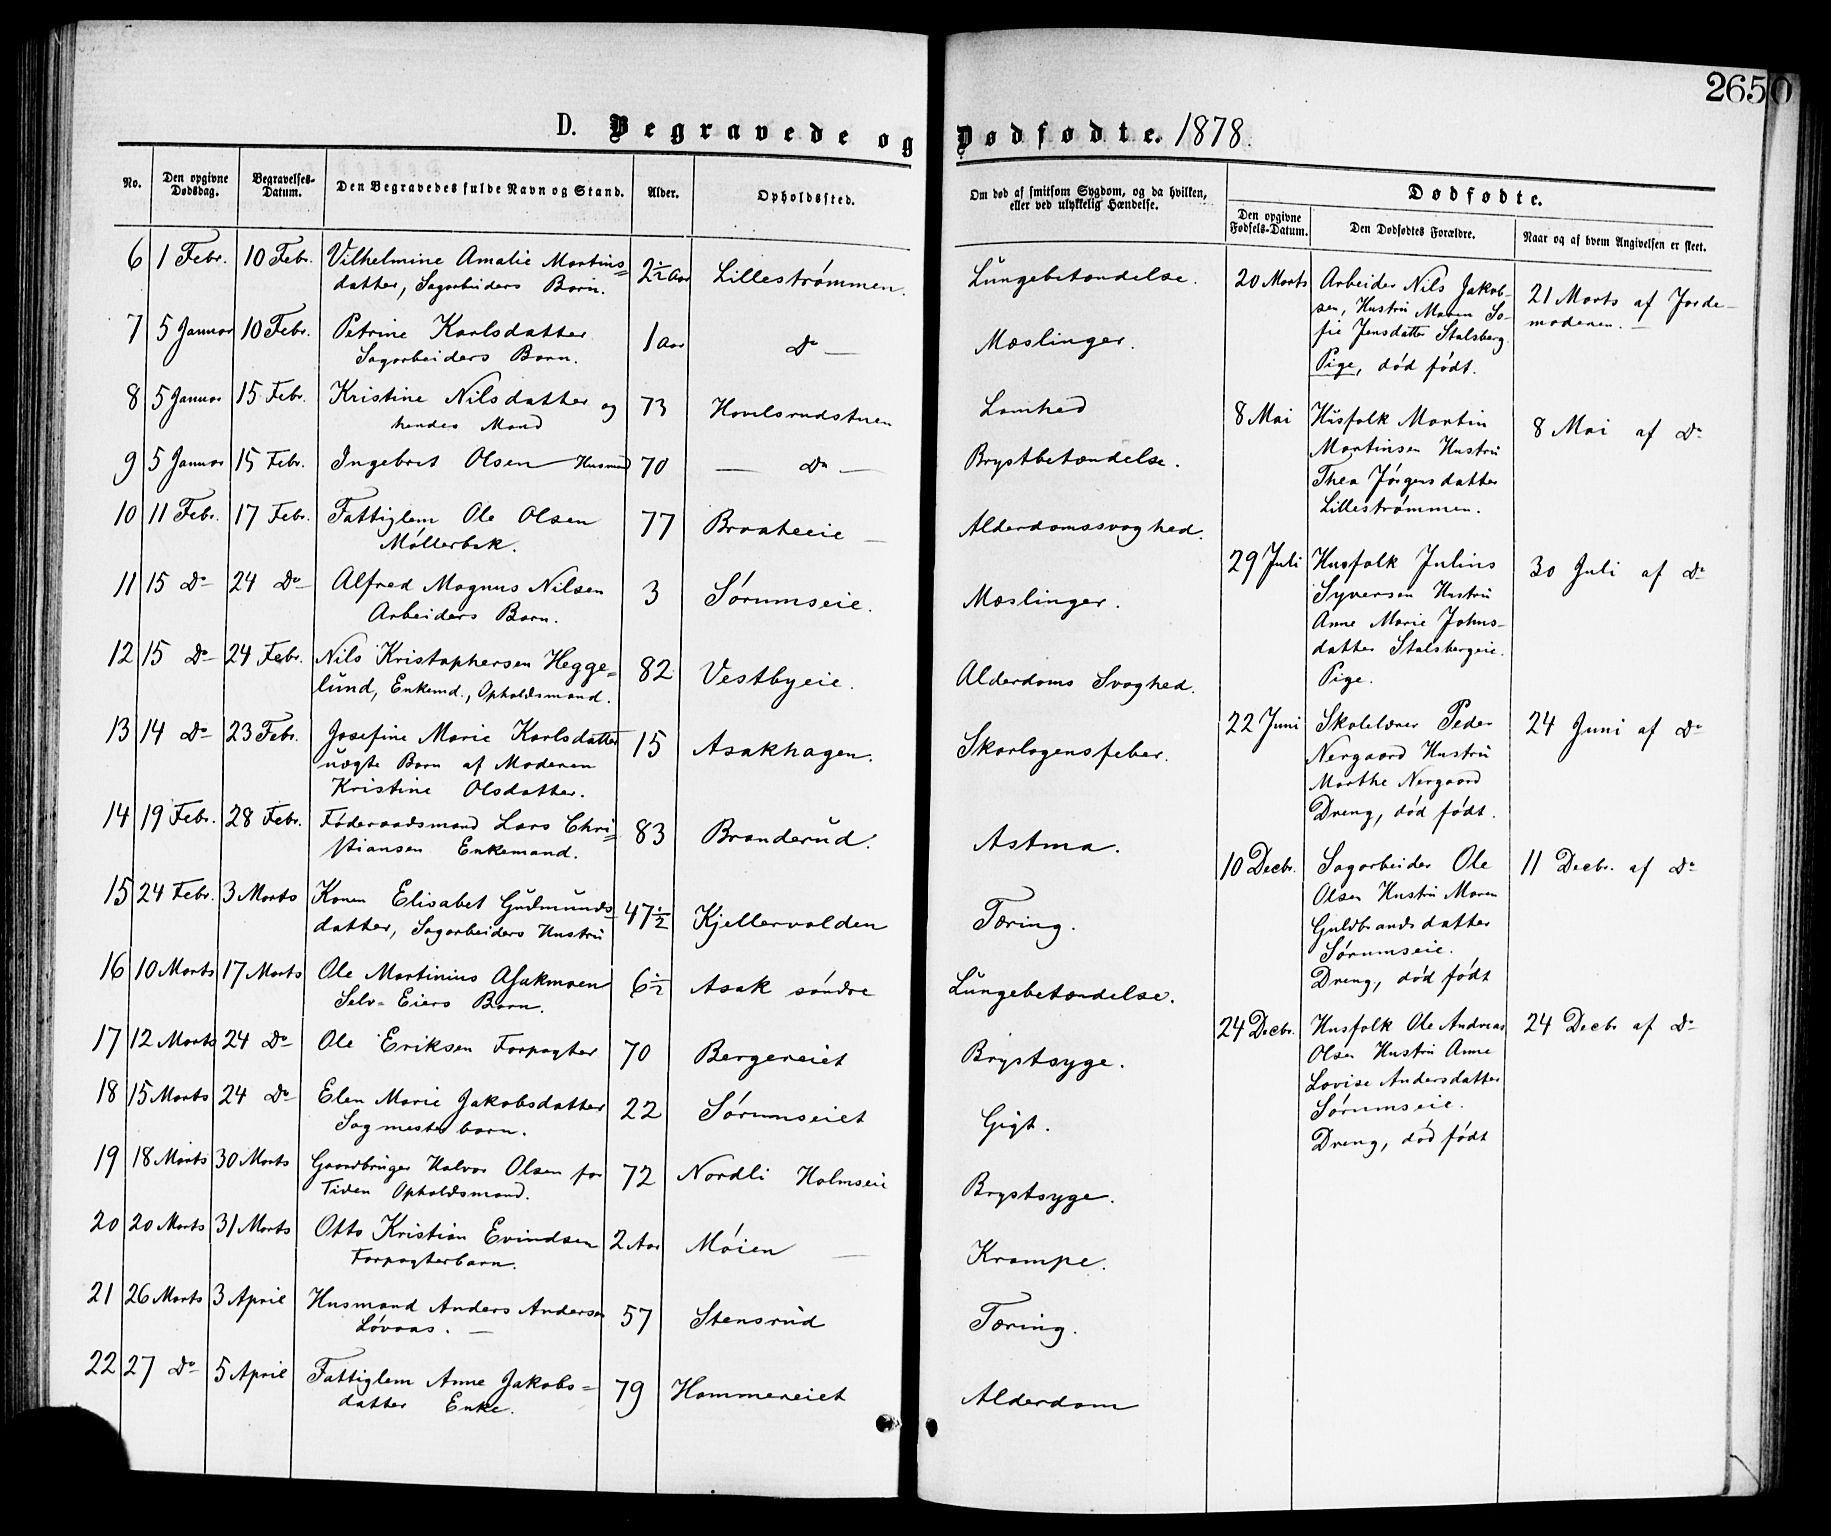 2650
D. Begravede og Dødfødte. 1878.
No. Den opgivne Dødsdag. Begravelses-Datum. Den Begravedes fulde Navn og Stand. Alder. Opholdssted. Om død af smitsom Sygdom, og da hvilken, eller ved ulykkelig Hændelse.
Dødfødte.
Den opgivne Fødsels-Datum. Den Dødfødtes Forældre. Naar og af hvem Angivelsen er skeet.
6 1 Febr. 10 Febr. Vilhelmine Amalie Martins= 2½ Aar Lillestrømmen. Lungebetændelse.
datter, Sagarbeiders Barn.
7 5 Januar 10 Febr. Petrine Karlsdatter 1 Aar Do — Mæslinger.
Sagarbeiders Barn.
8 5 Januar 15 Febr. Kristine Nilsdatter og 73 Hovelsrudstuen Lamhed
hendes Mand
9 5 Januar 15 Febr. Ingebret Olsen Husmd 70 — Do — Brystbetændelse.
10 11 Febr. 17 Febr. Fattiglem Ole Olsen 77 Braateeie — Alderdomssvaghed.
Møllerbek.
11 15 Do 24 Do Alfred Magnus Nilsen 3 Sørumseie. Mæslinger.
Arbeiders Barn.
12 15 Do 24 Febr. Nils Kristophersen Hegge= 82 Vestbyeie. Alderdoms Svaghed.
lund, Enkemd., Opholdsmand.
13 14 Do 23 Febr. Josefine Marie Karlsdatter 15 Asakhagen. Skarlagensfeber.
uægte Barn af Moderen
Kristine Olsdatter.
14 19 Febr. 28 Febr. Føderaadsmand Lars Chri= 83 Branderud. Astma.
stiansen Enkemand.
15 24 Febr. 3 Marts Konen Elisabet Gudmunds= 47½ Kjellervolden Tæring.
datter, Sagarbeiders Hustru
16 10 Marts 17 Marts Ole Martinius Asakmoen 6½ Asak søndre Lungebetændelse.
Selv-Eiers Barn.
17 12 Marts 24 Do Ole Eriksen Forpagter 70 Bergereiet Brystsyge.
18 15 Marts 24 Do Elen Marie Jakobsdatter 22 Sørumseiet Gigt.
Sagmesterbarn.
19 18 Marts 30 Marts Gaardbruger Halvor Olsen for 72 Nordli Holmseie Brystsyge.
Tiden Opholdsmand.
20 20 Marts 31 Marts Otto Kristian Evindsen 2 Aar Møien — Krampe.
Forpagterbarn.
21 26 Marts 3 April Husmand Anders Andersen 57 Stensrud Tæring.
Løvaas. —
22 27 Do 5 April Fattiglem Anne Jakobs= 79 Hammereiet Alderdom
datter Enke.
20 Marts Arbeider Nils Jakob- 21 Marts af Jorde-
sen, Hustru Maren So- moderen. —
fie Jensdatter Stalsberg.
Pige, død født.
8 Mai Husfolk Martin 8 Mai af Do
Martinsen Hustru
Thea Jørgensdatter
Lillestrømmen.
29 Juli Husfolk Julius 30 Juli af Do
Syversen Hustru
Anne Marie Johns-
datter Stalsbergeie.
Pige.
22 Juni Skolelærer Peder 24 Juni af Do
Nergaard Hustru
Marthe Nergaard
Dreng, død født.
10 Decbr. Sagarbeider Ole 11 Decbr. af Do
Olsen Hustru Maren
Guldbrandsdatter
Sørumseie.
Dreng, død født
24 Decbr. Husfolk Ole Andreas 24 Decbr af Do
Olsen Hustru Anne
Lovise Andersdatter
Sørumseie.
Dreng, død født